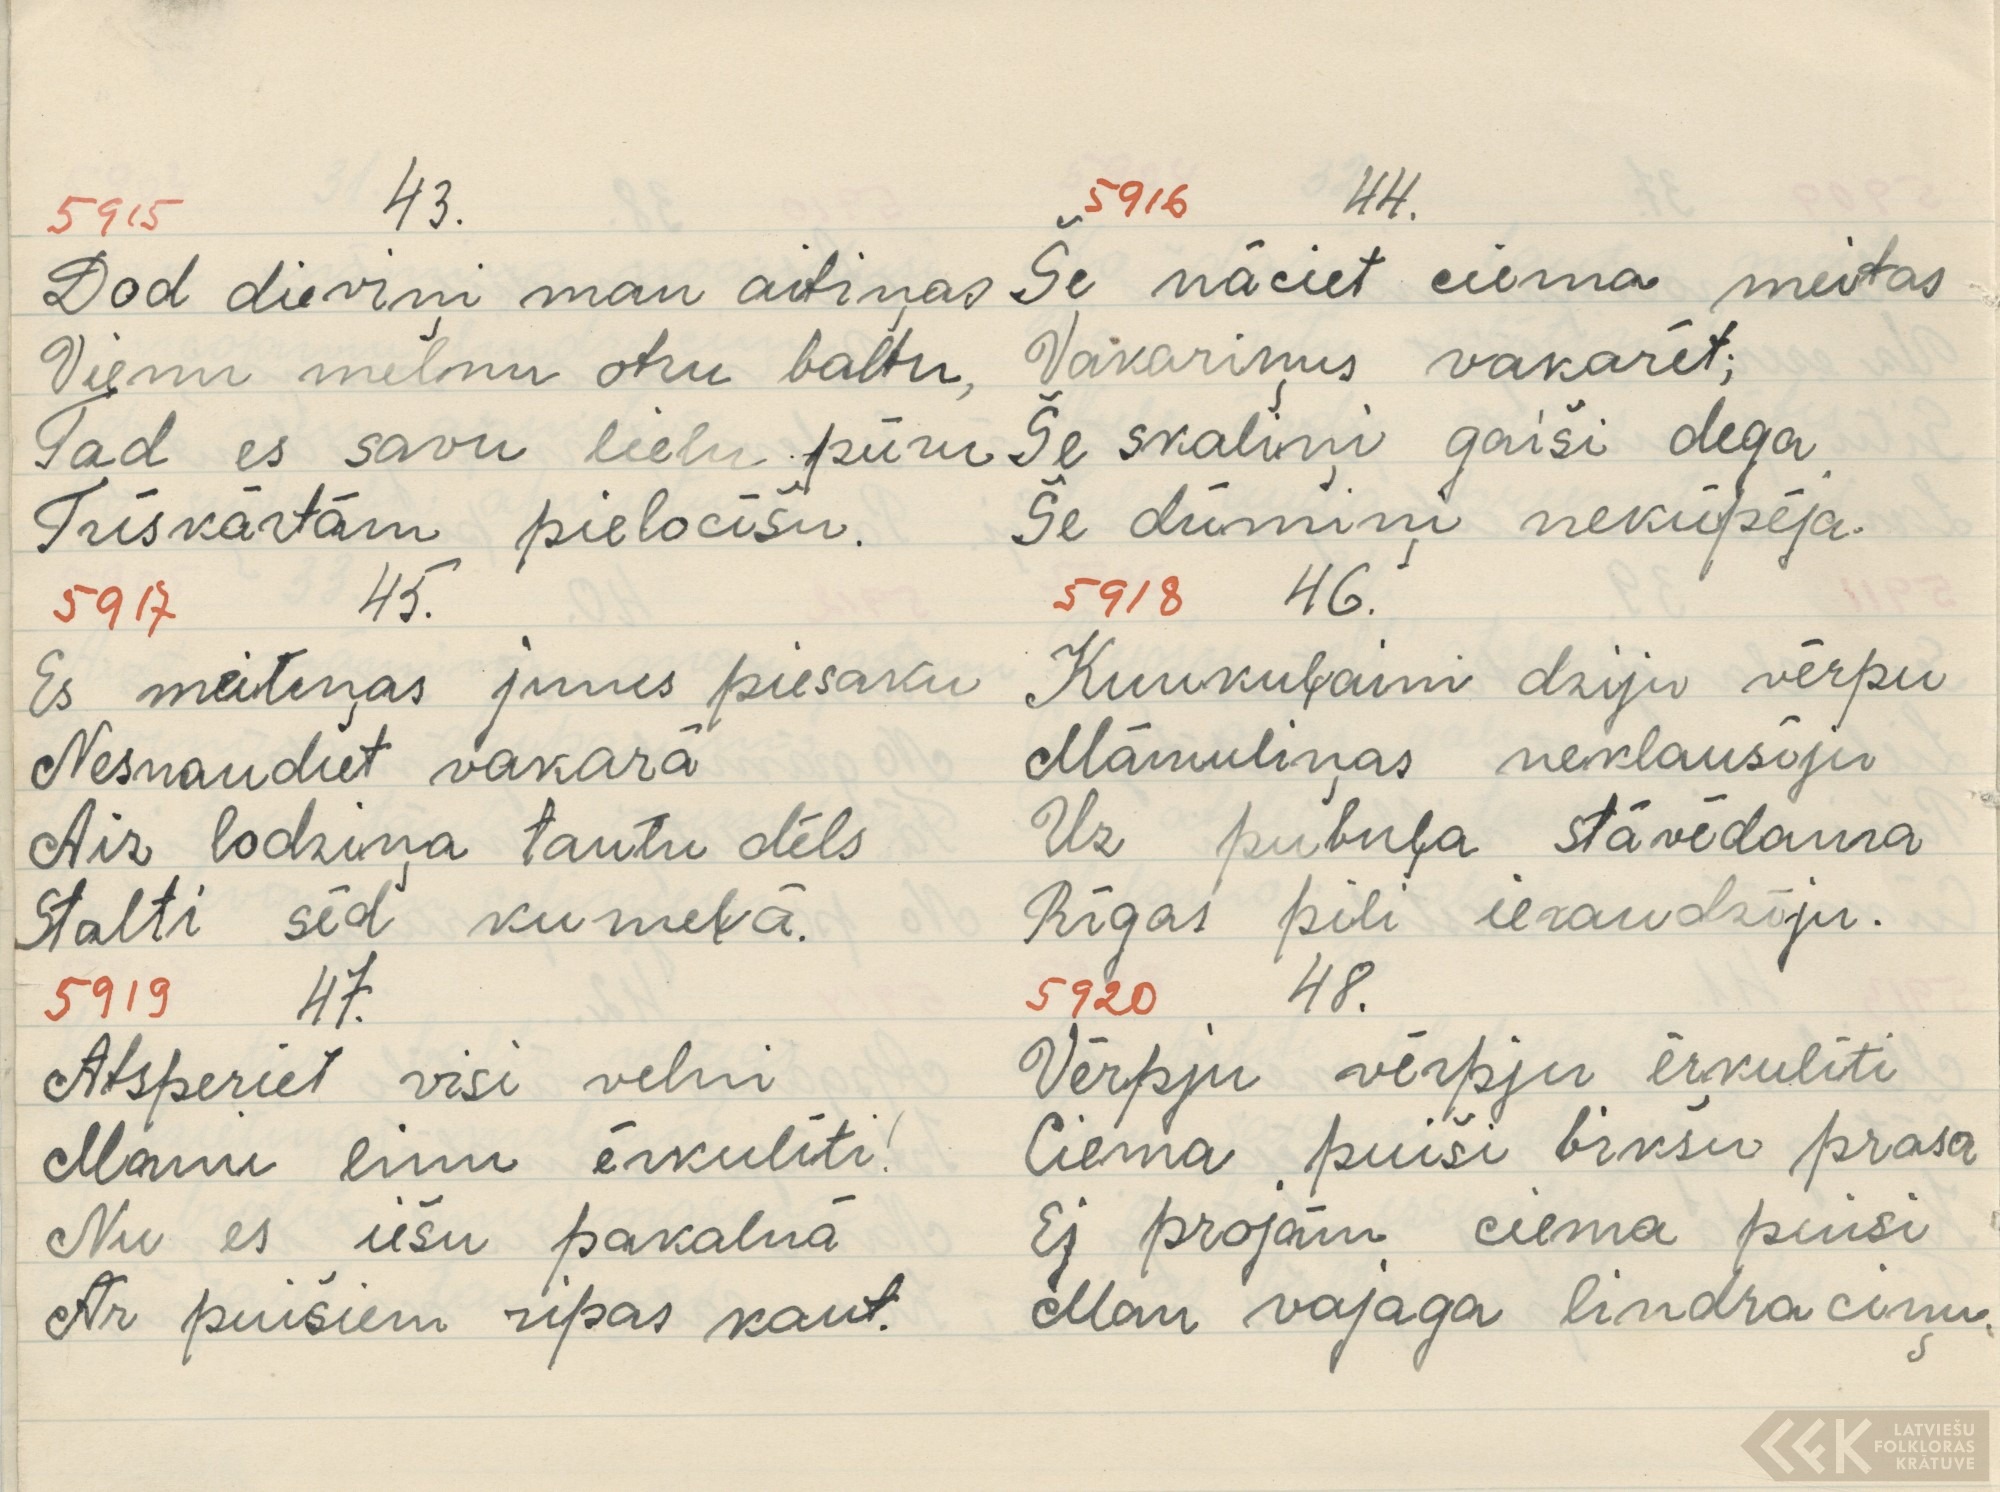 5915 43.
Dod dieviņi man aitiņas
Vienu melnu otru baltu,
Tad es savu lielu pūru
Trīskārtām pielocīšu.
5916 44.
Še nāciet ciema meitas
Vakariņus vakarēt;
Še skaliņi gaiši dega
Še dūmiņi nekūpēja.
5917 45.
Es meiteņas jumes piesaku
Nesnaudiet vakarā
Aiz lodziņa tautu dēls
Stalti sēd kumeļā.
5918 46.
Kunkuļaini dziju vērpu
Māmuliņas neklausīju
Uz pubuļa stāvēdama
Rīgas pili ieraudzīju.
5919 47.
Atsperiet visi velni
Manu linu ērkulīti!
Nu es iešu pakalnā
Ar puišiem ripas kaut.
5920 48.
Vērpju vērpju ērkulīti
Ciema puiši bikšu prasa
Ej projām ciema puisi
Man vajaga lindraciņu.
LATVIEŠU
FOLKLORAS
KRĀTUVE